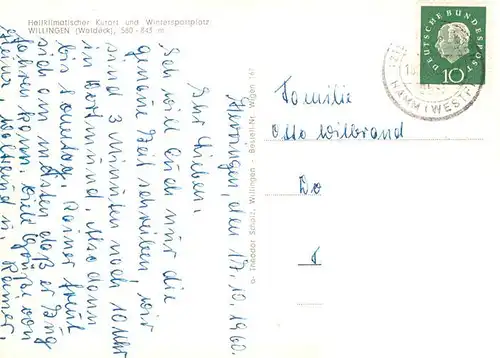 Heilklimatischer Kurort und Wintersportplatz
WILLINGEN (Waldeck), 560 - 843 m
DEUTSCHE BUNDESPOST
10
HAMM (WESTF
Familie
Otto Wilbrand
Do
Theodor Scholz, Willingen Bestell-Nr. Wilgen 167
den 17.10.1960.
Ihr Lieben,
Ich will Euch nur die
genaue Zeit schreiben, wir
sind 3 Minuten nach 10 Uhr
in Dortmund. Also dann
bis Sonntag, Rainer freut
sich am meisten daß er Zug
fahren kann. Viele Grüße von
Heinz, Waltraud u. Rainer.